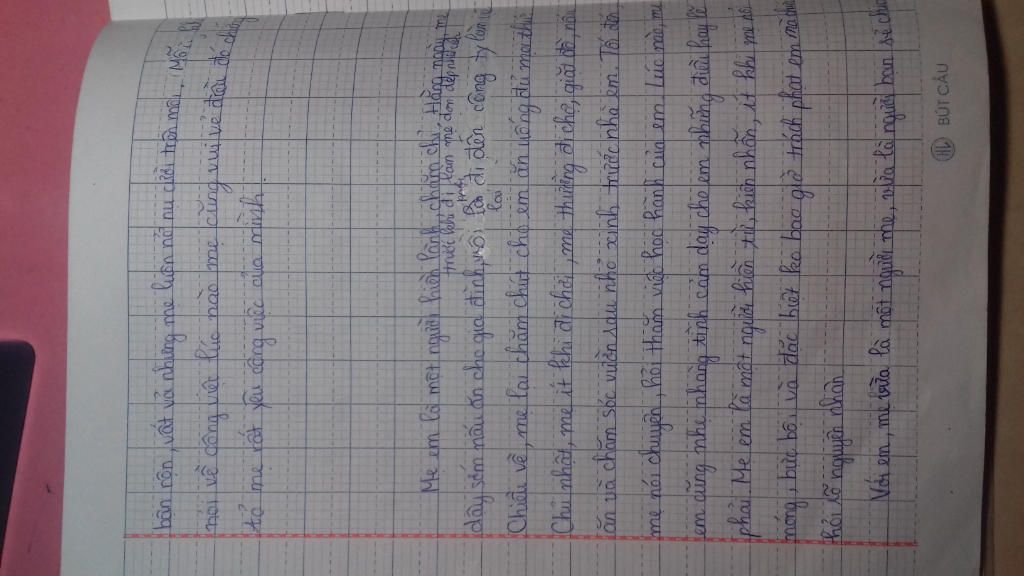 bận rộn, vất vả nhưng mẹ luôn nở nụ cười trên môi. Mỗi
nói về công việc lúc nào mẹ cũng vui vẻ điều đó chứng
tỏ mẹ rất yêu công việc của mình.
Mẹ em là một người hiền lành, chăm chỉ. Hằng ngày, mẹ
trước khi đi làm mẹ dọn dẹp nhà cửa
dậy sớm nấu ăn cho gia đình, rồi mới đi đến công ty làm
lại
Chiều về, mẹ lại chăm chút cho em ăn uống đủ mọi thứ
Chủ nhật, mẹ ít khi đi chơi, mẹ thường đi chợ, giặt đồ, nấu
ăn và chăm sóc viên sau nhỏ xinh trước nhà em. Tối đến,
mẹ nói chuyện, hỏi thăm việc học hành của em. Lúc nào, mẹ
em cũng nhẹ nhàng tình cảm dạy cho em những điều hay lẽ
phải. Mẹ em là một người hiền từ, kiên nhẫn, ít khi mẹ nổi
nóng, bực bội và đặc biệt ko bao giờ trách phạt em mà
hỏi rõ nguyên nhân
Với em, mẹ vừa là một người mẹ, vừa là người bạn sẻ chia
BÚT CÂU